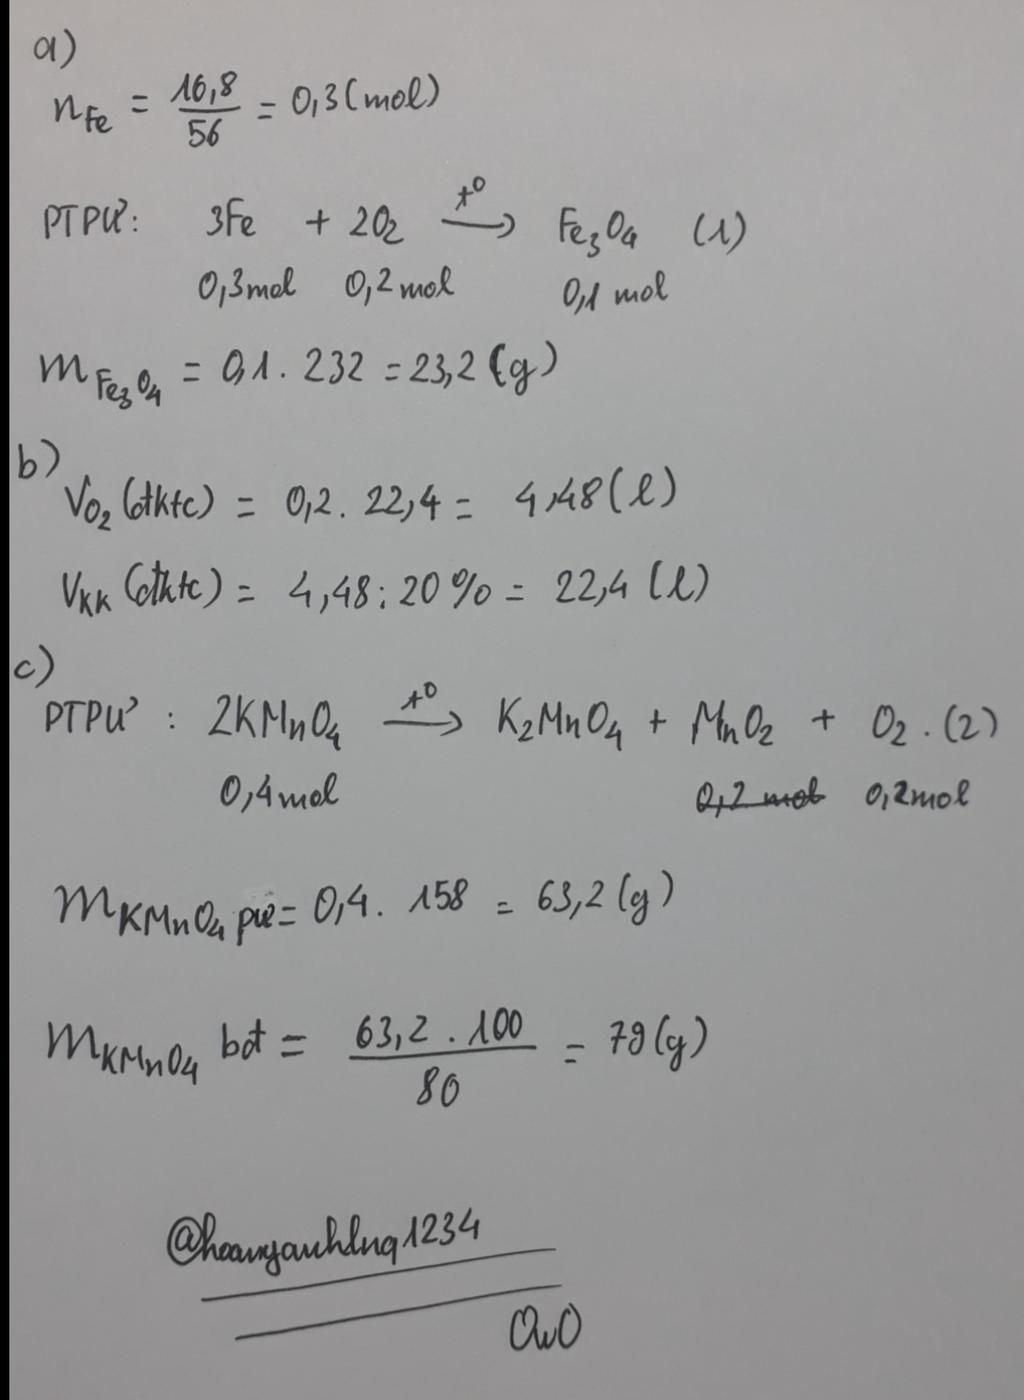 a)
nFe = 16,8/56 = 0,3 (mol)
PTPƯ: 3Fe + 2O2 t° → Fe3O4 (1)
0,3mol 0,2mol 0,1 mol
mFe3O4 = 0,1. 232 = 23,2 (g)
b)
VO2 (đktc) = 0,2. 22,4 = 4,48 (l)
VKK (đktc) = 4,48 : 20% = 22,4 (l)
c)
PTPƯ : 2KMnO4 t° → K2MnO4 + MnO2 + O2. (2)
0,4mol 0,2 mol 0,2mol
mKMnO4 pư = 0,4. 158 = 63,2 (g)
mKMnO4 bđ = 63,2 . 100/80 = 79 (g)
@hoanganhlnq1234
OwO